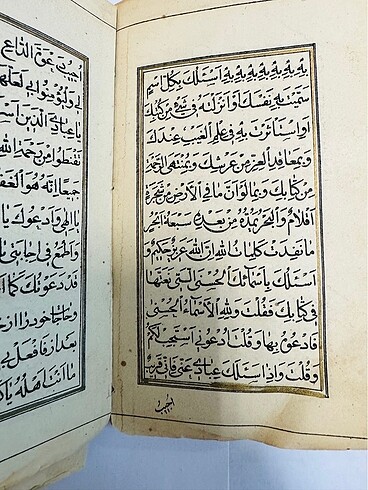 بِهِ بِهِ بِهِ بِهِ بِهِ بِهِ بِهِ اَسْئَلُكَ بِكُلِّ اسْمٍ
سَمَّيْتَ بِهِ نَفْسَكَ اَوْ اَنْزَلْتَهُ فِي شَيْءٍ مِنْ كُتُبِكَ
اَوِ اسْتَأْثَرْتَ بِهِ فِي عِلْمِ الْغَيْبِ عِنْدَكَ
وَبِمَعَاقِدِ الْعِزِّ مِنْ عَرْشِكَ وَبِمُنْتَهَى الرَّحْمَةِ
مِنْ كِتَابِكَ وَبِمَا لَوْ اَنَّ مَا فِي الْاَرْضِ مِنْ شَجَرَةٍ
اَقْلَامٌ وَالْبَحْرُ يَمُدُّهُ مِنْ بَعْدِهِ سَبْعَةُ اَبْحُرٍ
مَا نَفِدَتْ كَلِمَاتُ اللهِ اِنَّ اللهَ عَزِيزٌ حَكِيمٌ وَ
اَسْئَلُكَ بِاَسْمَائِكَ الْحُسْنَى الَّتِي نَعَتَّهَا
فِي كِتَابِكَ فَقُلْتَ وَلِلّهِ الْاَسْمَاءُ الْحُسْنَى
فَادْعُوهُ بِهَا وَقُلْتَ اُدْعُونِي اَسْتَجِبْ لَكُمْ
وَقُلْتَ وَاِذَا سَئَلَكَ عِبَادِي عَنِّي فَاِنِّي قَرِيبٌ
اجيب
اُجِيبُ دَعْوَةَ الدَّاعِ
لِي وَلْيُؤْمِنُوا بِي لَعَلَّهُمْ
يَا عِبَادِيَ الَّذِينَ
تَقْنَطُوا مِنْ رَحْمَةِ اللهِ
جَمِيعًا اِنَّهُ هُوَ
يَا اِلهِي وَاَدْعُوكَ يَا
وَاَطْمَعُ فِي اِجَابَتِي
قَدْ دَعَوْتُكَ كَمَا
خود را از
بعد از فَافْعَلْ بِي
مَا اَنْتَ اَهْلُهُ يَا